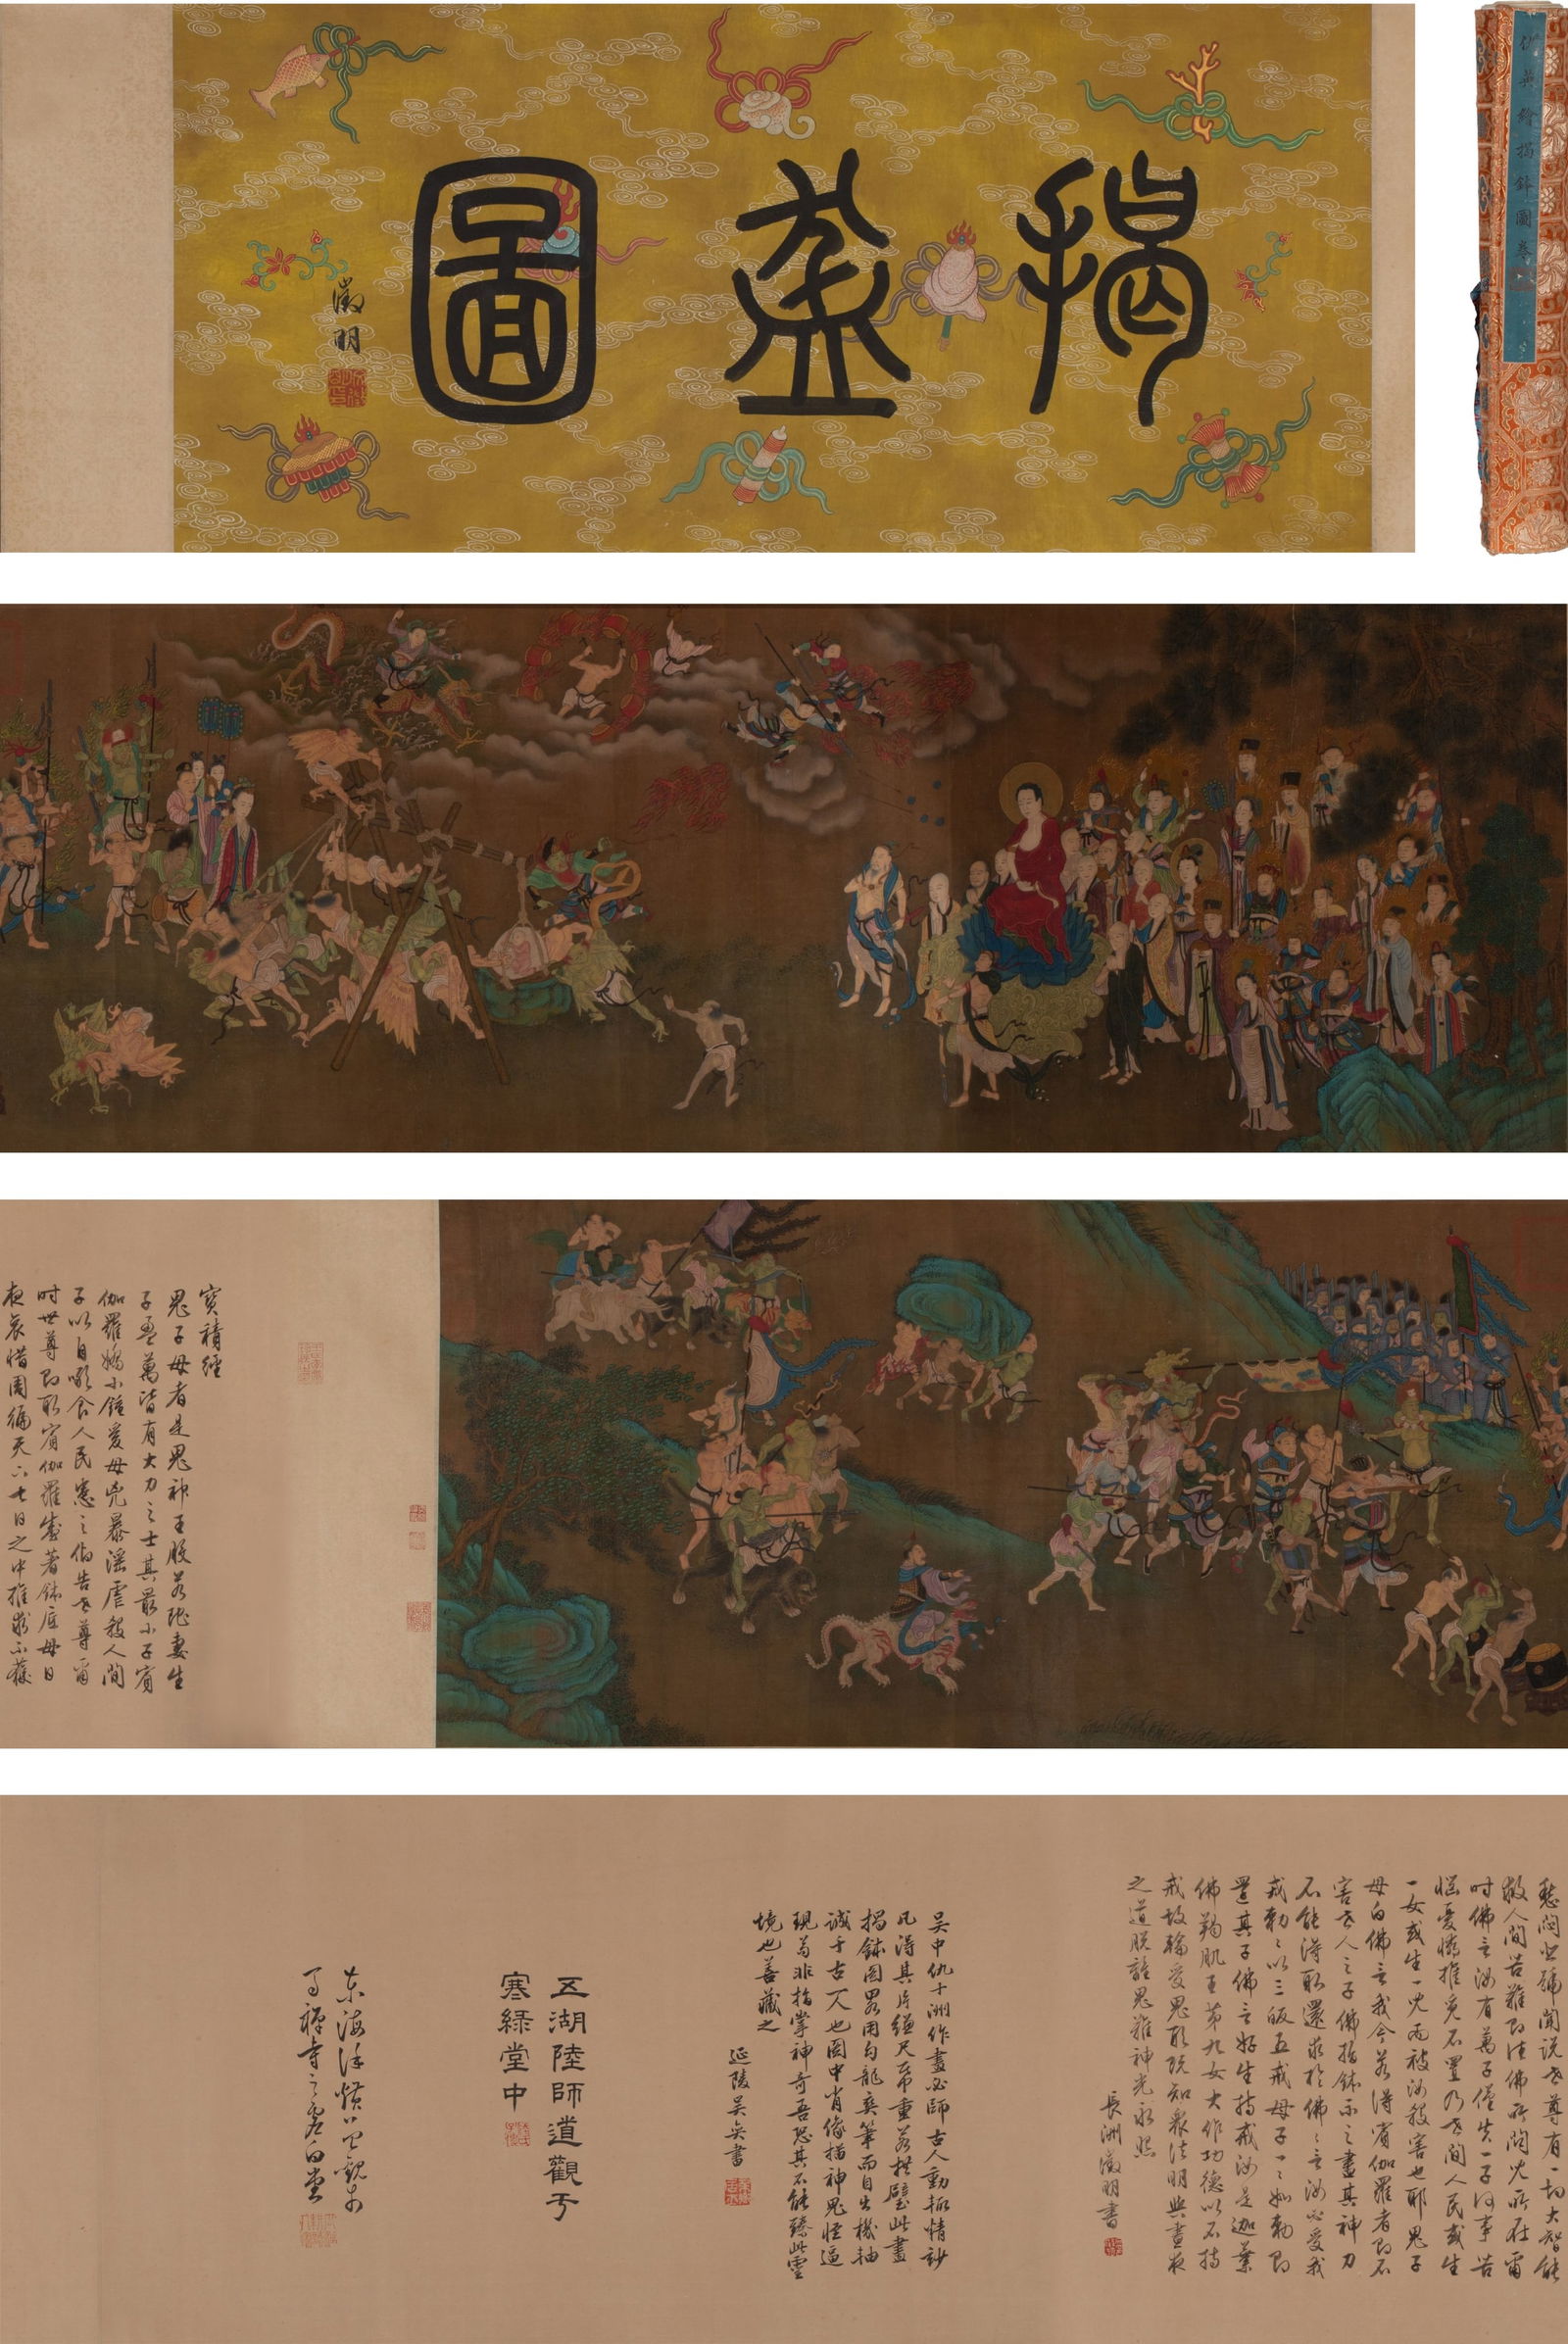 揭盋圖
徵明
仇英繪揭鉢圖卷
寶積經
鬼子母者是鬼神王般若陁妻生
子盈萬皆有大力之士其最小子賓
伽羅嬌小鍾愛母兇暴滛虐殺人間
子以自噉食人民患之佝告世尊爾
時世尊即取賓伽羅盛著鉢底母日
夜哀惜周徧天下七日之中推求不獲
愁悶悲號聞說世尊有一切大智能
救人間苦難即往佛所問兒所在爾
時佛言汝有萬子僅失一子何事苦
惱憂愁推覓不置乃世間人民或生
一女或生一兒而被汝殺害也耶鬼子
母白佛言我今若得賓伽羅者即不
害世人之子佛指鉢示之盡其神力
不能得取還求於佛佛言汝必愛我
戒勅勅以三皈五戒母子一如勅即
還其子佛言好生持戒汝是迦葉
佛羯肌王第九女大作功德以不持
戒故輪受鬼形既知眾法明與晝夜
之道脫離鬼雅神光永照
長洲徵明書
吳中仇十洲作畫必師古人動輙情妙
凡得其片縑尺帋重若拱璧此畫
揭鉢圖畧用勾龍爽筆而自出機抽
誠乎古人也圖中肖像描神鬼怪逼
現若非指掌神奇吾恐其不能臻此靈
境也善藏之
延陵吳奕書
五湖陸師道觀于
寒綠堂中
東海徐
禪寺之